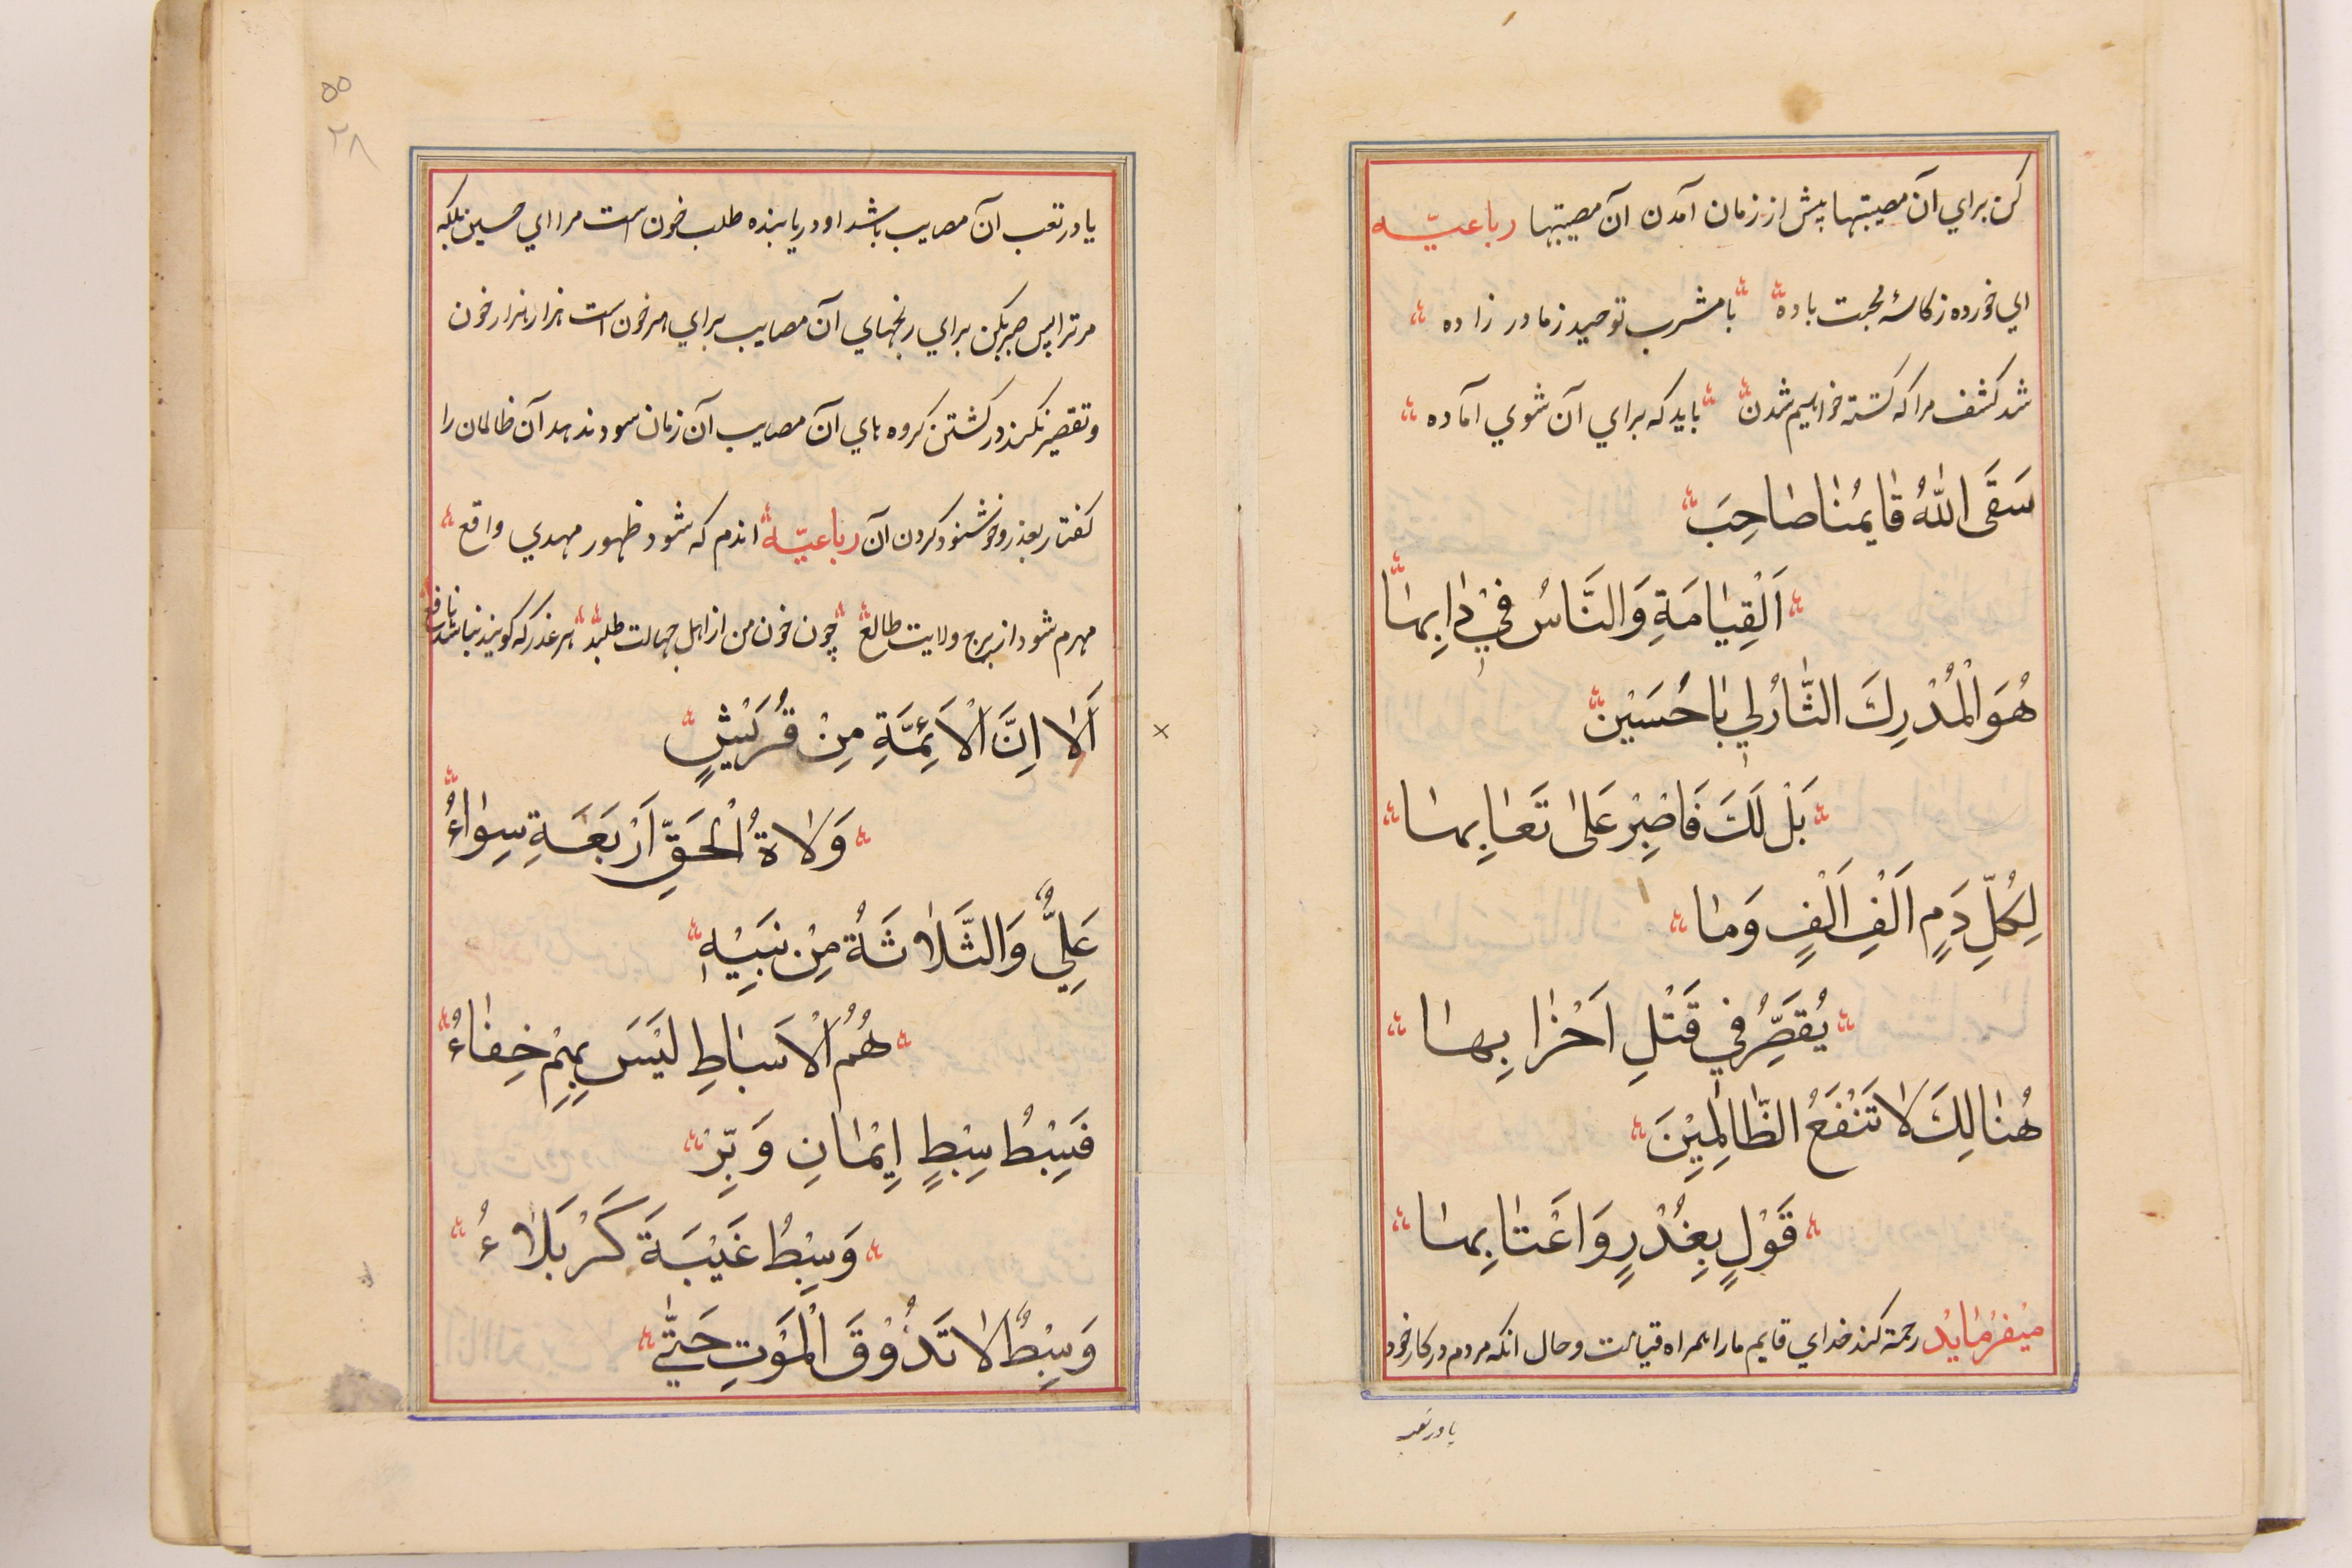 كن براي آن مصيبتها پيش از زمان آمدن آن مصيبتها رباعيّه
اي خورده ز كاسهٔ محبت باده با مشرب توحيد ز مادر زاده
شد كشف مرا كه كشته خواهيم شدن بايد كه براي آن شوي آماده
سَقَى اللّٰهُ قٰايمُنٰا صٰاحِبَ
اَلْقِيٰامَةِ وَالنَّاسُ فِيْ دٰابِهٰا
هُوَ الْمُدْرِكَ الثّٰارُ لِي يٰا حُسَيْن
بَلْ لَكَ فَاصْبِرْ عَلىٰ تَعٰابِهٰا
لِكُلِّ دَمٍ اَلْفِ اَلْفٍ وَمٰا
يُقَصِّرُ فِي قَتْلِ اَحْزٰابِهٰا
هُنٰالِكَ لٰا تَنْفَعُ الظّٰالِمِيْنَ
قَوْلٍ بِعُذْرٍ وَاعْتٰابِهٰا
ميْفرْمٰايْد رحمة كند خداي قايم ما را همراه قيامت و حال انكه مردم در كار خود
يا در تعب
٥٥
٢٨
يا در تعب آن مصايب باشد او دريابنده طلب خون است مرا اي حسين بلكه
مر ترا پس صبر بكن براي رنجهاي آن مصايب براي هر خون است هزار هزار خون
و تقصير نكند در كشتن كروه هاي آن مصايب آن زمان سود ندهد آن ظالمان را
كفتار بعذر و خوشنود كردن آن رباعيّه اندم كه شود ظهور مهدي واقع
مهرم شود از برج ولايت طالع چون خون من از اهل جهالت طلبد هر عذر كه كويند نباشد نافع
اَلٰا اِنَّ اَلْاَئِمَّةِ مِنْ قُرَيْشٍ
وَلٰاةُ الْحَقِّ اَرْبَعَةِ سِوٰاءُ
عَلِيٌّ وَالثَّلٰاثَةُ مِنْ نَبَيْهِ
هُمُ اَلْاَسبٰاطِ لَيْسَ بِهِمْ خِفٰاءُ
فَسِبْطُ سِبْطٍ اِيْمٰانِ وَبِّرْ
وَسِبْطُ غَيْبَةَ كَرْبَلٰاءُ
وَسِبْطٌ لٰا تَذُوْقَ الْمَوْتِ حَتّٰي